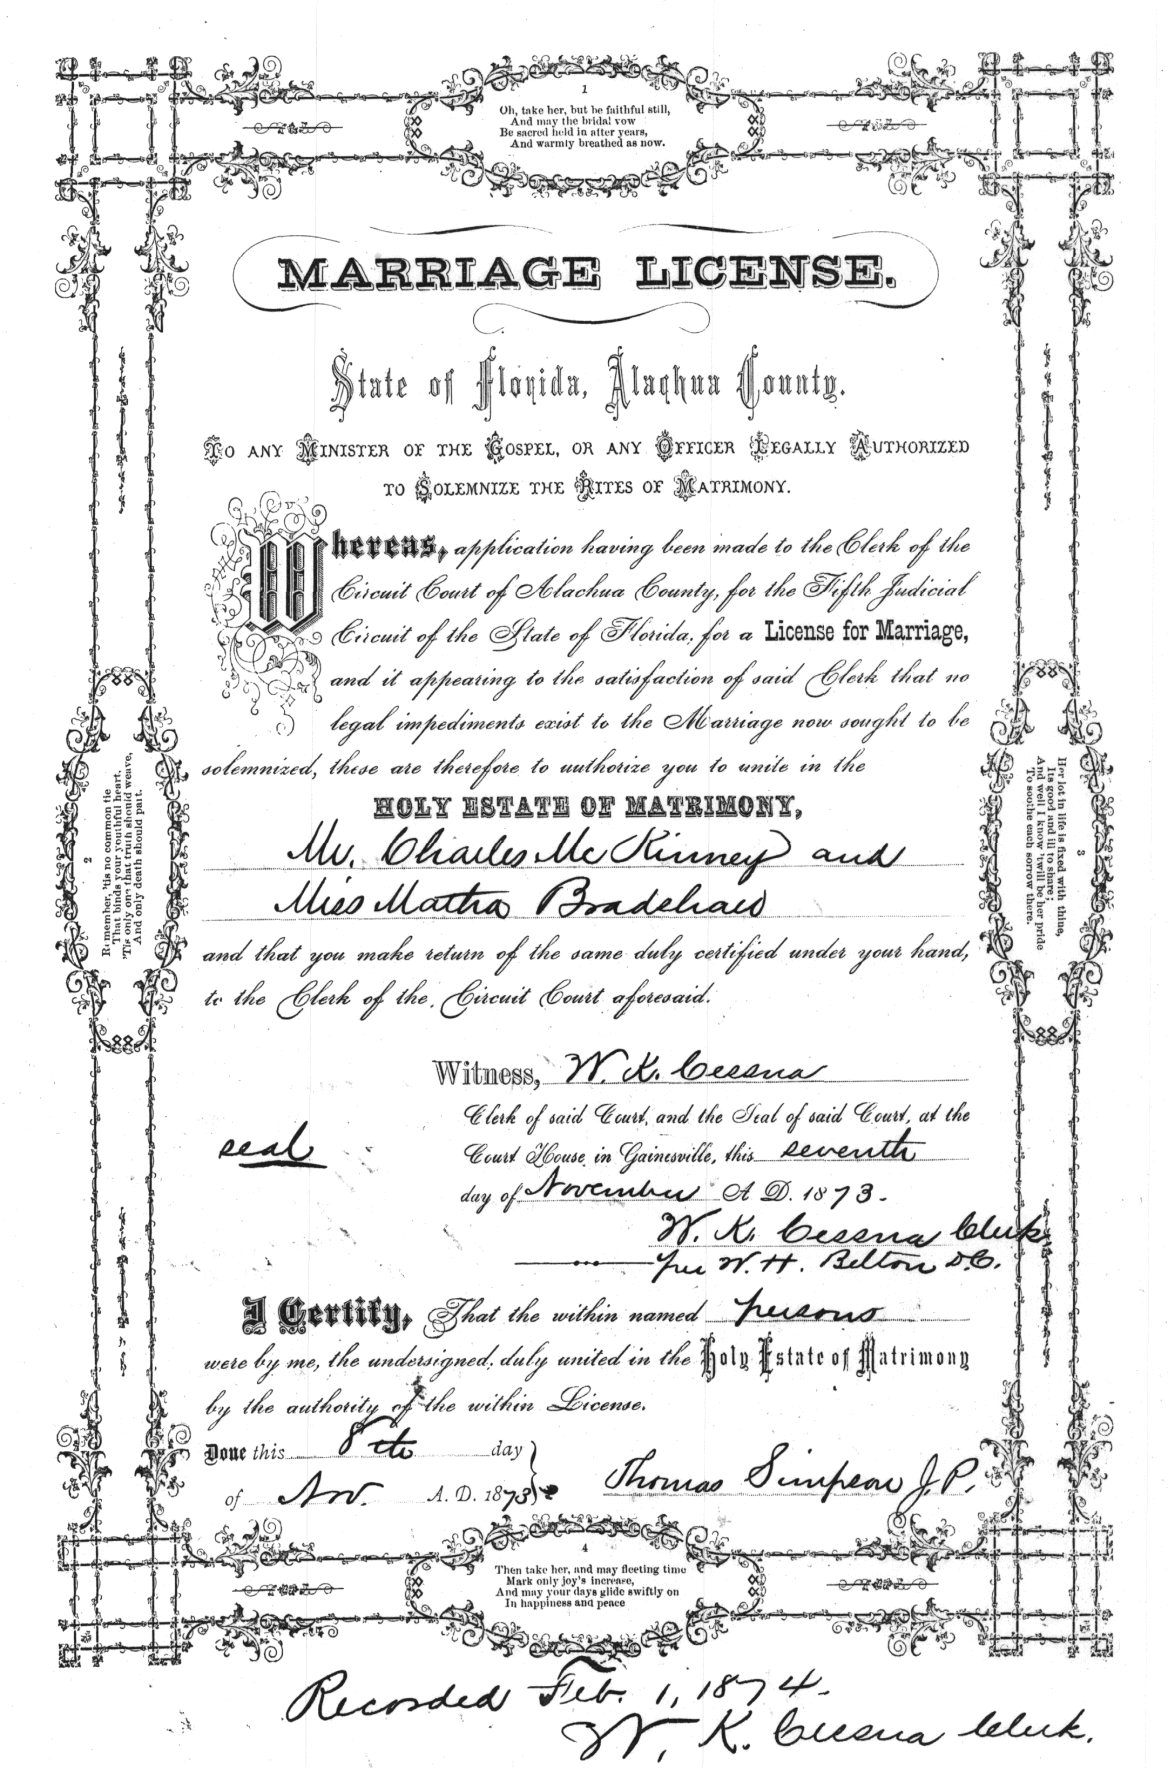 1
Oh, take her, but be faithful still,
And may the bridal vow
Be sacred held in after years,
And warmly breathed as now.
MARRIAGE LICENSE.
State of Florida, Alachua County.
TO ANY MINISTER OF THE GOSPEL, OR ANY OFFICER LEGALLY AUTHORIZED
TO SOLEMNIZE THE RITES OF MATRIMONY.
Whereas, application having been made to the Clerk of the
Circuit Court of Alachua County, for the Fifth Judicial
Circuit of the State of Florida, for a License for Marriage,
and it appearing to the satisfaction of said Clerk that no
legal impediments exist to the Marriage now sought to be
solemnized, these are therefore to authorize you to unite in the
HOLY ESTATE OF MATRIMONY,
Mr. Charles McKinney and
Miss Martha Bradshaw
and that you make return of the same duly certified under your hand,
to the Clerk of the Circuit Court aforesaid.
Witness, W. K. Cessna
Clerk of said Court, and the Seal of said Court, at the
seal
Court House in Gainesville, this seventh
day of November A. D. 1873.
W. K. Cessna Clerk
per W. H. Belton D.C.
I Certify, That the within named persons
were by me, the undersigned, duly united in the Holy Estate of Matrimony
by the authority of the within License.
Done this 8th day
of Nov. A. D. 1873
Thomas Simpson J.P.
2
Remember, 'tis no common tie
That binds your youthful heart.
'Tis only one that truth should weave,
And only death should part.
3
Her lot in life is fixed with thine,
Its good and ill to share;
And well I know 'twill be her pride
To soothe each sorrow there.
4
Then take her, and may fleeting time
Mark only joy's increase,
And may your days glide swiftly on
In happiness and peace
Recorded Feb. 1, 1874.
W. K. Cessna Clerk.